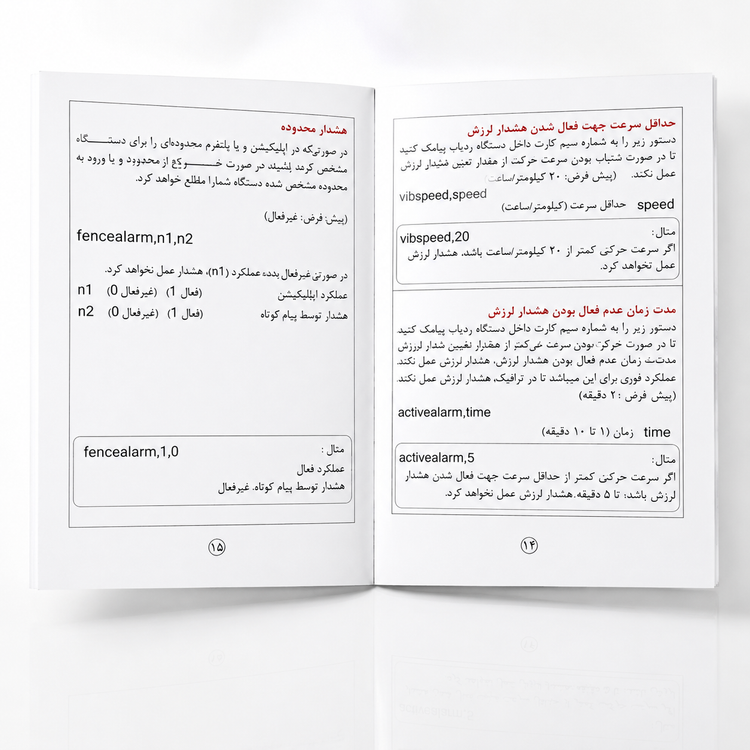 حداقل سرعت جهت فعال شدن هشدار لرزش
دستور زیر را به شماره سیم کارت داخل دستگاه ردیاب پیامک کنید
تا در صورت شتباب بودن سرعت حرکت از مقدار تعیین هشدار لرزش
عمل نکند. (پیش فرض: ۲۰ کیلومتر/ساعت
vibspeed,speed
speed حداقل سرعت (کیلومتر/ساعت)
مثال:
vibspeed,20
اگر سرعت حرکتی کمتر از ۲۰ کیلومتر/ساعت باشد، هشدار لرزش
عمل نخواهد کرد.
مدت زمان عدم فعال بودن هشدار لرزش
دستور زیر را به شماره سیم کارت داخل دستگاه ردیاب پیامک کنید
تا در صورت بودن سرعت کمتر از تعیین لرزش
مدت زمان عدم فعال بودن هشدار لرزش، هشدار لرزش عمل نکند.
عملکرد فوری برای این میباشد تا در ترافیک، هشدار لرزش عمل نکند.
(پیش فرض : ۲ دقیقه)
activealarm,time
time زمان (۱ تا ۱۰ دقیقه)
مثال:
activealarm,5
اگر سرعت حرکتی کمتر از حداقل سرعت جهت فعال شدن هشدار
لرزش باشد؛ تا ۵ دقیقه.هشدار لرزش عمل نخواهد کرد.
۱۴
هشدار محدوده
در صورتی‌که در اپلیکیشن و یا پلتفرم محدوده‌ای را برای دستگاه
مشخص در صورت از محدوده و یا ورود به
محدوده مشخص شده دستگاه شمارا مطلع خواهد کرد.
(پیش فرض: غیرفعال)
fencealarm,n1,n2
در صورتی غیرفعال عملکرد (n1)، هشدار عمل نخواهد کرد.
عملکرد اپلیکیشن (فعال 1) (غیرفعال 0) n1
هشدار توسط پیام کوتاه (فعال 1) (غیرفعال 0) n2
مثال :
fencealarm,1,0
عملکرد فعال
هشدار توسط پیام کوتاه. غیرفعال
۱۵